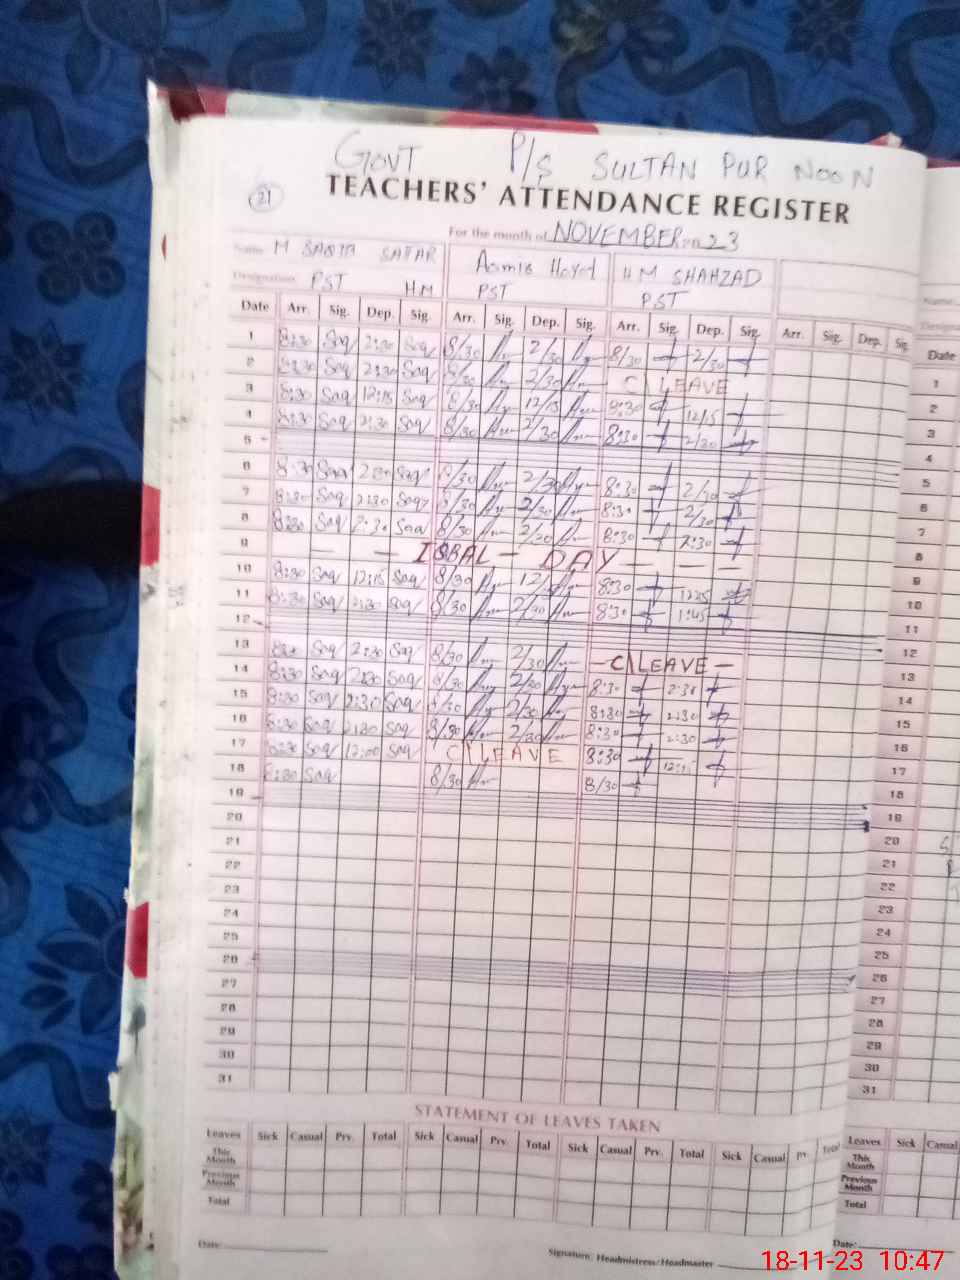 GOVT P/S SULTAN PUR NOON
21 TEACHERS' ATTENDANCE REGISTER
For the month of NOVEMBER 2023
Name M SAQIB SATTAR HM SHAHZAD
Designation PST H.M PST PST
Date Arr. Sig. Dep. Sig. Arr. Sig. Dep. Sig. Arr. Sig. Dep. Sig. Arr. Sig. Dep. Sig. Date
1 8:30 Saq 2:30 Saq 8/30 2/30 8/30 2/30 1
2 8:30 Saq 2:30 Saq 8/30 2/30 C\LEAVE 2
3 8:30 Saq 12:15 Saq 8/30 12/15 8:30 12/15 3
4 8:30 Saq 2:30 Saq 8/30 2/30 8:30 2/30 4
5 5
6 8:30 Saq 2:30 Saq 8/30 2/30 8:30 2/30 6
7 8:30 Saq 2:30 Saq 8/30 2/30 8:30 2/30 7
8 8:30 Saq 2:30 Saq 8/30 2/30 8:30 2:30 8
9 — — IQBAL — DAY — — — 9
10 8:30 Saq 12:15 Saq 8/30 12/ 8:30 10
11 8:30 Saq 2:30 Saq 8/30 2/30 8:30 1:45 11
12 12
13 Saq 2:30 Saq 8/30 2/30 — C\LEAVE — 13
14 8:30 Saq 2:30 Saq 8/30 2/30 8:30 2:30 14
15 8:30 Saq 2:30 Saq 8/30 2/30 8:30 2:30 15
16 8:30 Saq 2:30 Saq 8/30 2/30 8:30 2:30 16
17 8:30 Saq 12:00 Saq C\LEAVE 8:30 12:15 17
18 8:30 Saq 8/30 8/30 18
19 19
20 20
21 21
22 22
23 23
24 24
25 25
26 26
27 27
28 28
29 29
30 30
31 31
STATEMENT OF LEAVES TAKEN
Leaves Sick Casual Prv. Total Sick Casual Prv. Total Sick Casual Prv. Total Sick Casual Prv. Total Leaves Sick Casual
This Month This Month
Previous Month Previous Month
Total Total
Date: Signature: Headmistress/Headmaster Date:
18-11-23 10:47